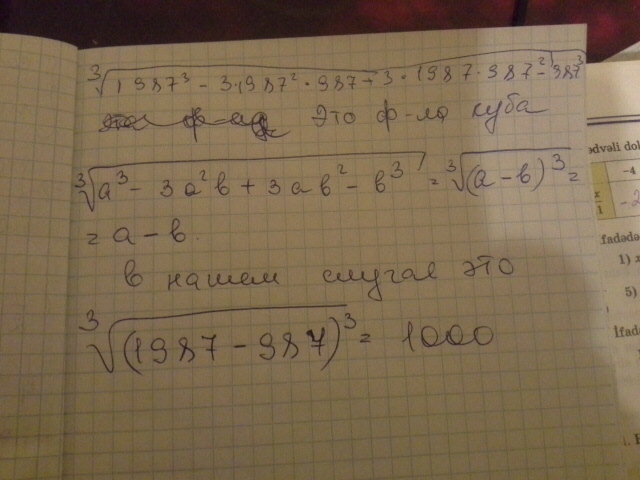 ∛(1987³ − 3·1987²·987 + 3·1987·987² − 987³)
Это ф-ла куба
∛(a³ − 3a²b + 3ab² − b³) = ∛(a − b)³ =
= a − b.
в нашем случае это
∛(1987 − 987)³ = 1000
ədvəli dol
-4
x/1
-2
fadədə
1) x
5)
İfad